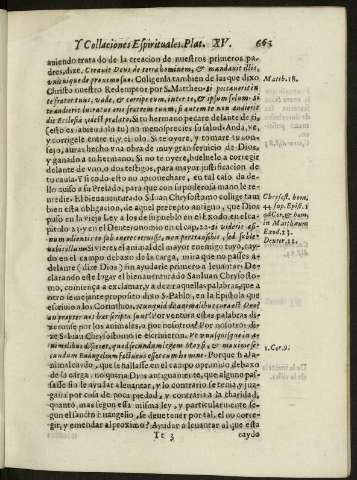 Y Collaciones Espirituales. Plat. XV. 663
auiendo tratado de la creacion de nuestros primeros pa-
dres, dize. Creauit Deus de terra hominem, & mandauit illis,
vnicuique de proximo suo. Coligenla tambien de las que dixo
Christo nuestro Redemptor por S. Matheo. si peccauerit in
te frater tuus, vade, & corripe eum, inter te, & ipsum solum. si
te audierit lucratus eris fratrem tuum, si autem te non audierit
dic Ecclesiæ, id est prælato. Si tu hermano pecare delante de ti,
(esto es sabiendolo tu) no menosprecies su salud. Anda, ve,
y corrigele entre ti, y el solo. Si te oyere, y tomare tu conse-
jo, auras hecho vna obra de muy gran seruicio de Dios,
y ganado a tu hermano. Si no te oyere, bueluelo a corregir
delante de vno, o dos testigos, para mayor justificacion de
tu causa. Y si todo esto no aprouechare, en tal caso da de-
llo auiso a su Prelado, para que con su poderosa mano le re-
medie. El bienauenturado S. Iuan Chrysostomo colige tam
bien esta obligacion, de aquel precepto antiguo, que Dios
puso en la vieja Ley a los de su pueblo en el Exodo, en el ca-
pitulo 23. y en el Deuteronomio en el cap. 22. si videris asi-
num odientis te sub onere cecidisse, non pertransibis, sed suble-
uabis illum. Si vieres el asnillo del mayor enemigo tuyo, cay-
do en el campo debaxo de la carga, mira que no passes a-
delante (dize Dios) sin ayudarle primero a leuantar: De-
clarando este lugar el bienauenturado San Iuan Chrysosto-
mo, comiença a exclamar, y a dezir aquellas palabras, que a
otro semejante proposito dixo S. Pablo, en la Epistola que
escriuio a los Corinthos. Nunquid de animalibus cura est Deo?
an propter nos hæc scripta sunt? Por ventura estas palabras di-
xeronse por los animales, o por nosotros? Por nosotros di-
ze S. Iuan Chrysostomo se escriuieron.
Porque si a la-
nimalejo caydo, que se hallasse en el campo oprimido debaxo
de la carga, no queria Dios antiguamente, que alguno pas-
sasse sin le ayudar a leuantar, y lo contrario se tenia, y juz-
gaua por cosa de poca piedad, y contraria a la charidad,
quanto mas segun esta misma ley, y particularmente se-
gun el sancto Euangelio, se deue tener por tal, el no corre-
gir, y emendar al proximo? Ayudar a leuantar al que esta
Tt 3 caydo
Matth. 18.
Chrysost. hom.
in Matthæum
Exod. 23.
Deuter. 22.
1. Cor. 9.